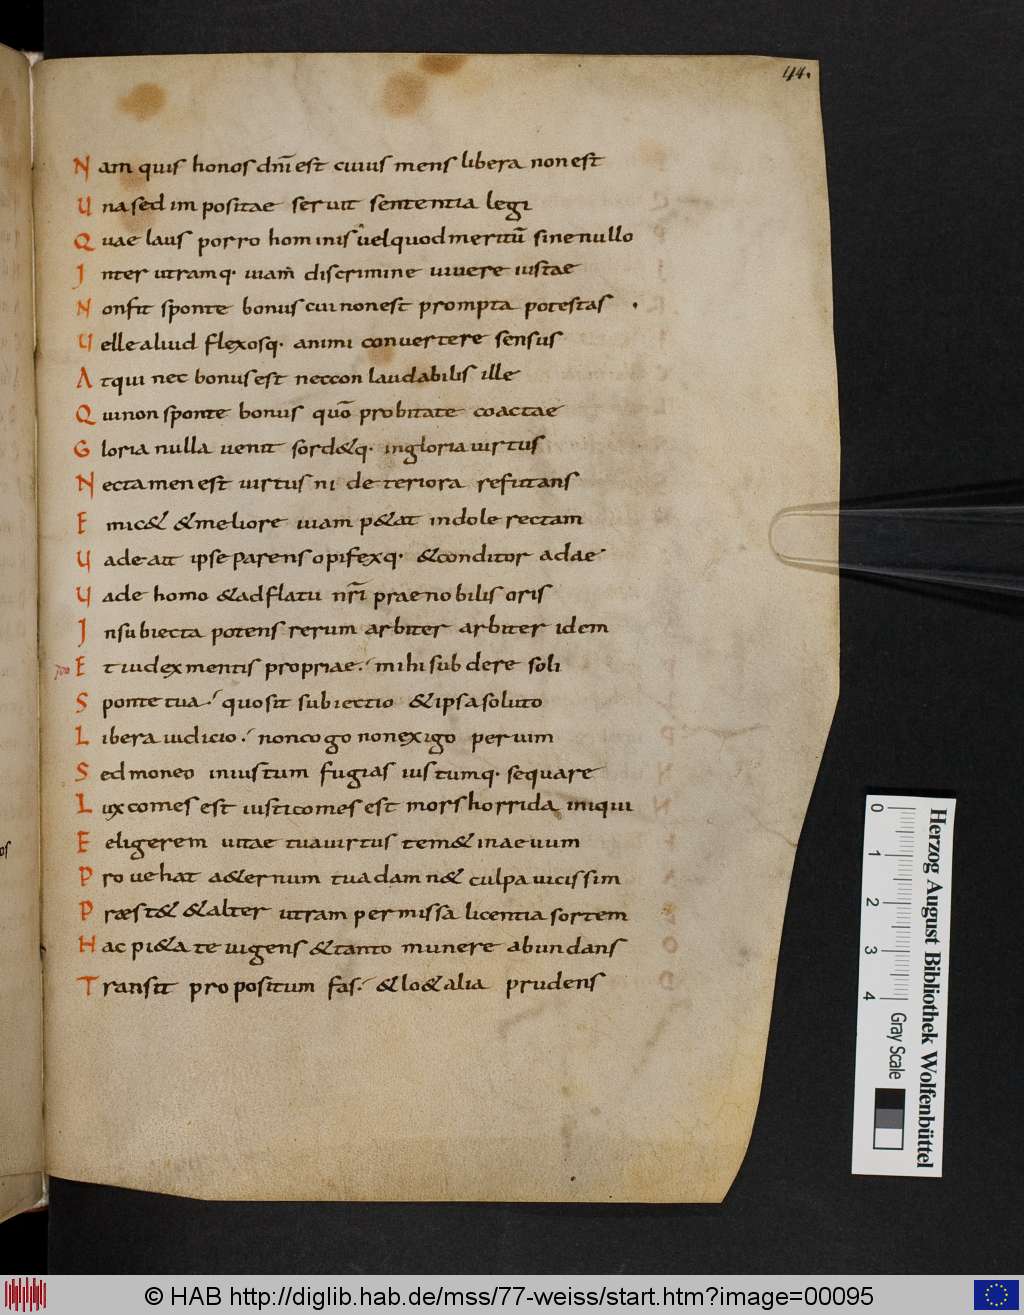 44.
Nam quis honos dnī est cuius mens libera non est
Una sed impositae seruit sententia legi
Quae laus porro hominis uel quod meritū sine nullo
Inter utramq· uiam discrimine uiuere iustae
Non fit sponte bonus cui non est prompta potestas
Uelle aliud flexosq· animi conuertere sensus
Atqui nec bonus est nec conlaudabilis ille
Qui non sponte bonus quō probitate coactae
Gloria nulla uenit sord&q· ingloria uirtus
Nec tamen est uirtus ni deteriora refutans
Emic& & meliore uiam p&at indole rectam
Uade ait ipse parens opifexq· & conditor adae
Uade homo & adflatu nrī praenobilis oris
Insubiecta potens rerum arbiter arbiter idem
700 Et iudex mentis propriae. mihi subdere soli
Sponte tua. quo sit subiectio & ipsa soluto
Libera iudicio. non cogo non exigo per uim
Sed moneo iniustum fugias iustumq· sequare
Lux comes est iusti comes est mors horrida iniqui
Eelige rem uitae tua uirtus tem& in aeuum
Prouehat a&ernum tua damn& culpa uicissim
Præst& & alter utram permissa licentia sortem
Hac pi&ate uigens & tanto munere abundans
Transit propositum fas. & lo&alia prudens
os
Herzog August Bibliothek Wolfenbüttel
0 1 2 3 4 Gray Scale
© HAB http://diglib.hab.de/mss/77-weiss/start.htm?image=00095